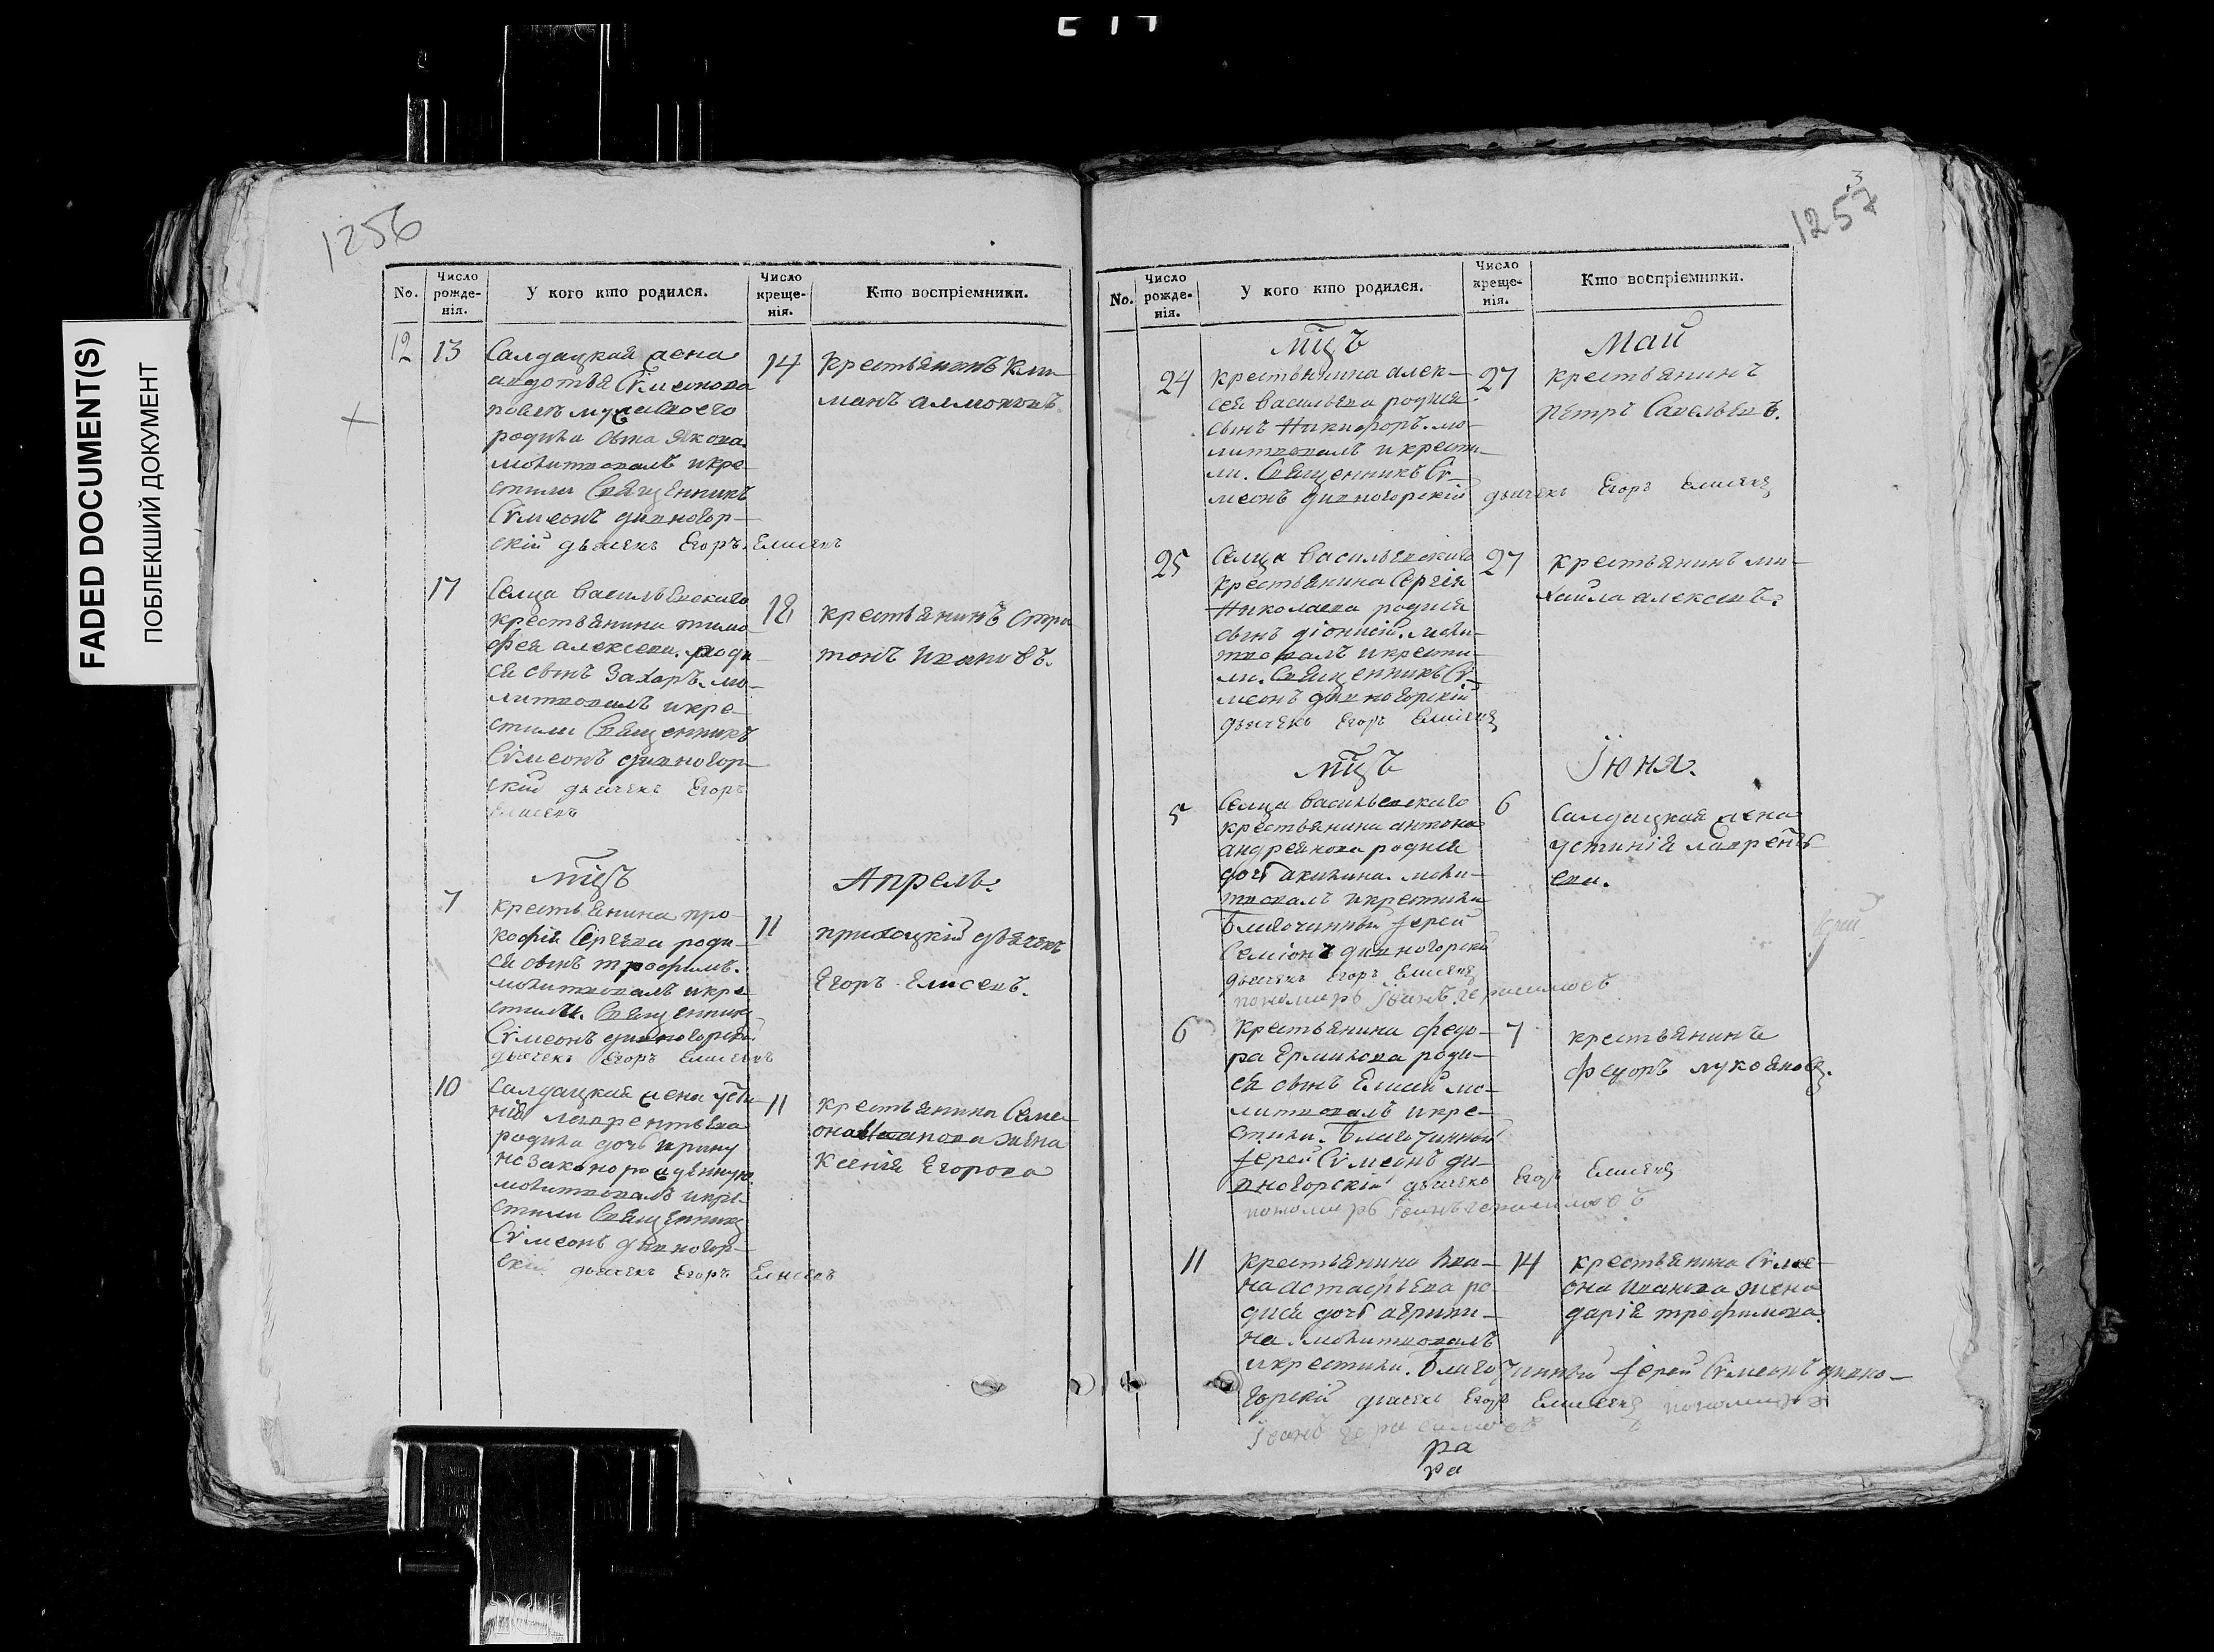 FADED DOCUMENT(S)
ПОБЛЕКШИЙ ДОКУМЕНТ
1256
No.
Число рожде-нія.
У кого кто родился.
Число креще-нія.
Кто воспріемники.
12 13 Салдацкая жена
авдотья Сѵмеонова
родила сына якова
молитвовалъ икре
стили Священникъ
Сѵмеонъ дивногор-
скій дьячекъ Егоръ Елисеевъ
14 крестьянинъ Кли
манъ
17 Селца Васильевскаго
крестьянина тимо
фея алексеева роди
ся сынъ Захаръ. мо-
литвовалъ икре-
стили Священникъ
Сѵмеонъ дивногор-
скій дьячекъ Егоръ
Елисеевъ
18 крестьянинъ
Ивановъ.
мцъ Апрель.
7 крестьянина про-
кофія Сергеева роди-
ся сынъ трофимъ.
молитвовалъ икре
стили. Священникъ
Сѵмеонъ дивногорскій
дьячекъ Егоръ Елисеевъ
11 дьячекъ
Егоръ Елисеевъ.
10 Салдацкая жена Усти
нія лаврентьева
родила дочь ирину
незаконорожденную
молитвовалъ икре
стили Священникъ
Сѵмеонъ дивногор-
скій дьячекъ Егоръ Елисеевъ
11 крестьянина Семе
она Иванова жена
Ксенія Егорова
3
1257
No.
Число рожде-нія.
У кого кто родился.
Число креще-нія.
Кто воспріемники.
мцъ Май
24 крестьянина алек-
сея Васильева родися
сынъ Никифоръ. мо-
литвовалъ икрести-
ли. Священникъ Сѵ-
меонъ дивногорскій дьячекъ Егоръ Елисеевъ
27 крестьянинъ
петръ Савельевъ.
25 Селца Васильевскаго
крестьянина Сергія
Николаева родися
сынъ діонисій. моли-
твовалъ икрести-
ли. Священникъ Сѵ-
меонъ дивногорскій
дьячекъ Егоръ Елисеевъ
27 крестьянинъ ми-
хаила алексеевъ.
мцъ Іюня.
5 Селца Васильевскаго
крестьянина антона
андреянова родися
дочь акилина. моли-
твовалъ икрестили
Благочинный Іерей
Симіонъ дивногорскій
дьячекъ Егоръ Елисеевъ
пономарь Іванъ Герасимовъ
6 Салдацкая жена
устинія лаврентъ
ева.
6 Крестьянина федо-
ра Ермилова роди-
ся сынъ Елисей мо-
литвовалъ икре-
стили. Благочинный
Іерей Сѵмеонъ ди-
вногорскій дьячекъ Егоръ Елисеевъ
пономарь Іванъ Герасимовъ
7 крестьянинъ
федоръ лукояновъ.
11 крестьянина Ива-
на астафьева ро
дися дочь агрипи-
на. молитвовалъ
икрестили. Благочинный Іерей Сѵмеонъ дивно-
горскій дьячекъ Егоръ Елисеевъ пономарь
Іванъ Герасимовъ
14 крестьянина Сѵме-
она Иванова жена
дарія трофимова.
ра
ра